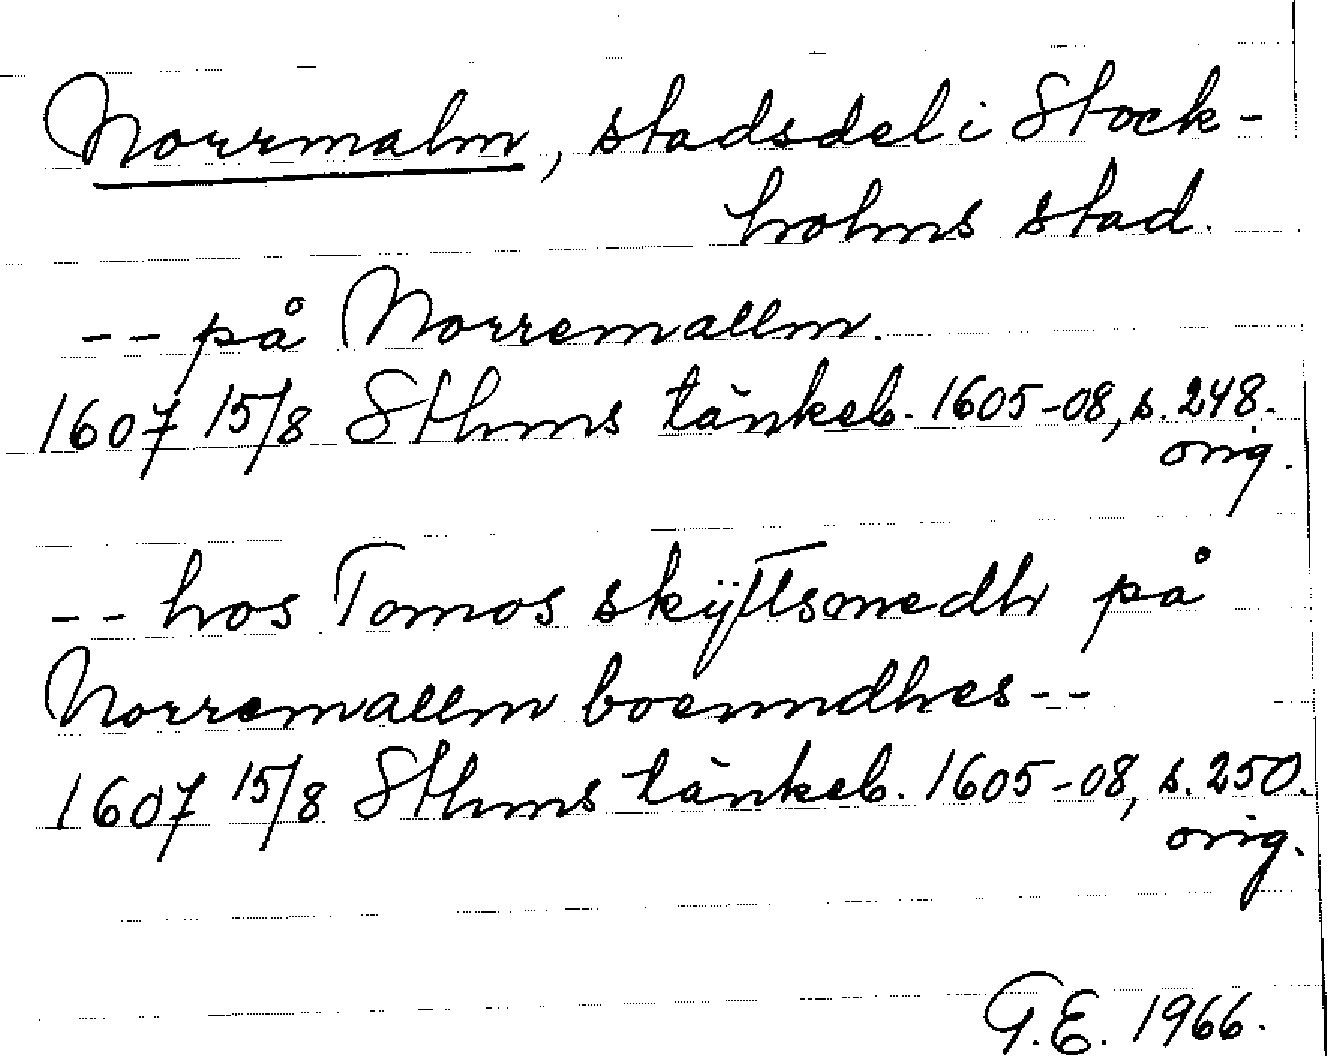 Norrmalm, stadsdel i Stock-
holms stad.
-- på Norremallm.
1607 15/8 Sthms tänkeb. 1605-08, s. 248.
orig.
-- hos Tomos skÿttsmedh på
Norremallm boenndhes --
1607 15/8 Sthms tänkeb. 1605-08, s. 250.
orig.
G.E. 1966.